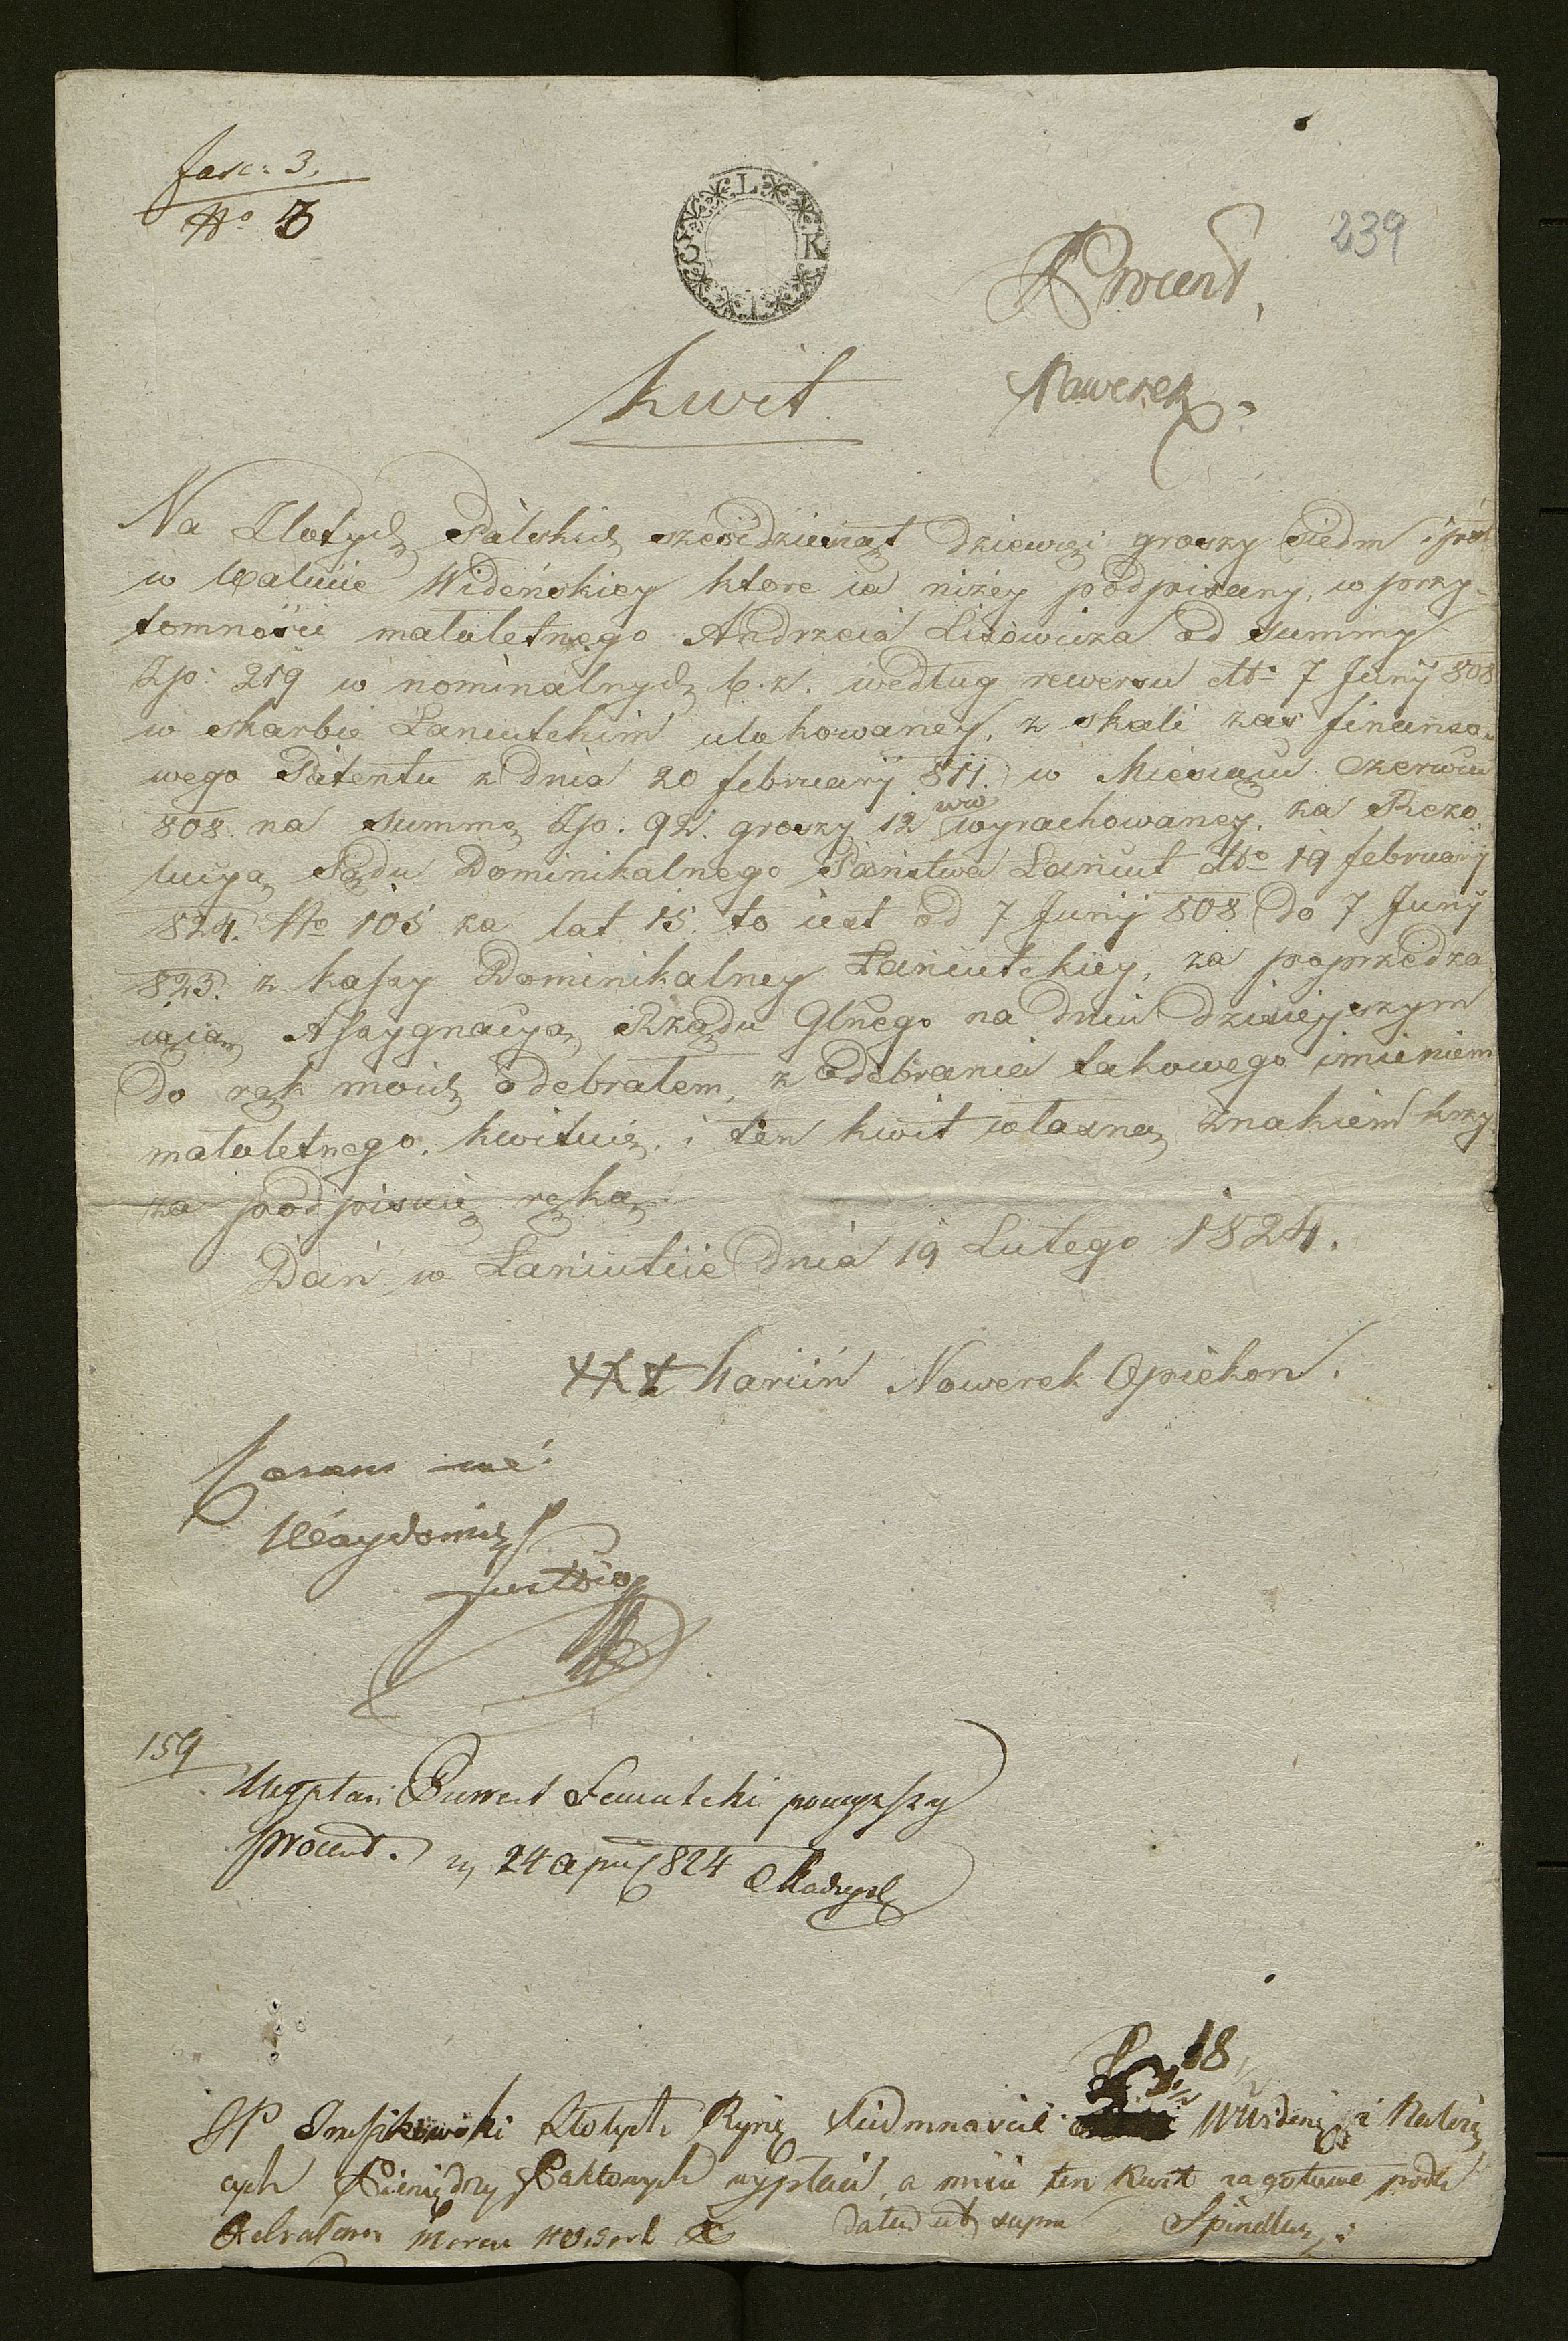 fasc: 3.
No 3
L K I C
239
Procent,
Nawerek.
Kwit.
Na Złotych Polskich sześcdziesiąt dziewięć groszy siedm i pół
w Walucie Wideńskiey ktore ia niżey podpisany, w przy-
tomności małoletnego Andrzeia Lisowicza od summy
Zp: 219 w nominalnych b.z. według rewersu dtto 7 Junij 808
w skarbie Łancutskim ulokowaney, z skali zas finanso-
wego Patentu z dnia 20 february 811. w Miesiącu Czerwcu
808. na summę Zp: 92. groszy 12 ww wyrachowaney, za Rezo-
lucyą Sądu Dominikalnego Państwa Łańcut dtto 19 february
824. No 105 za lat 15. to iest od 7 Junij 808 do 7 Junij
823. z kassy Dominikalney Łańcutskiey, za poprzedza-
iącą Assygnacyą Rządu Glnego na dniu dzisieyszym
do rąk moich odebrałem, z odebrania takowego imieniem
małoletnego kwituię, i ten kwit własną znakiem krzy-
ża podpisuię ręką.
Dan w Łancucie dnia 19 Lutego 1824.
+++ Marcin Nawerek Opiekon.
Coram me
159
Wypłaci Burmt Łancutski powyższy
procent. 24 824
18
JP Złotych Ryńs siedmnascie i
cych Pieniędzy wypłaci, a mnie ten kwit za gotowe poda
Odebrałem datum ut supra Spindler